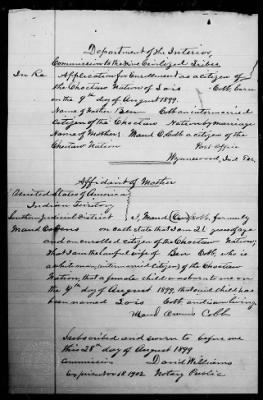 Department of the Interior,
Commission to the Five Civilized Tribes
In Re Application for Enrollment as a citizen of
the Choctaw Nation of Lois Cobb, born
on the 9th day of August 1899.
Name of Father: Ben Cobb an intermarried
citizen of the Choctaw Nation by marriage
Name of Mother: Maud C. Cobb a citizen of the
Choctaw Nation Post Office
Wynnewood, Ind Ter.
Affidavit of Mother
United States of America
Indian Territory,
Southern Judicial District I, Maud Cobb formerly
Maud on oath state that I am 21 years of age
and an enrolled citizen of the Choctaw Nation;
that I am the lawful wife of Ben Cobb, who is
a white man, intermarried citizen, of the Choctaw
Nation, that a female child was born to me on
the 9th day of August 1899, that said child has
been named Lois Cobb and is now living.
Maud Cobb
Subscribed and sworn to before me
this 28th day of August 1899
Commission David Williams
Expires Nov 18 1902 Notary Public